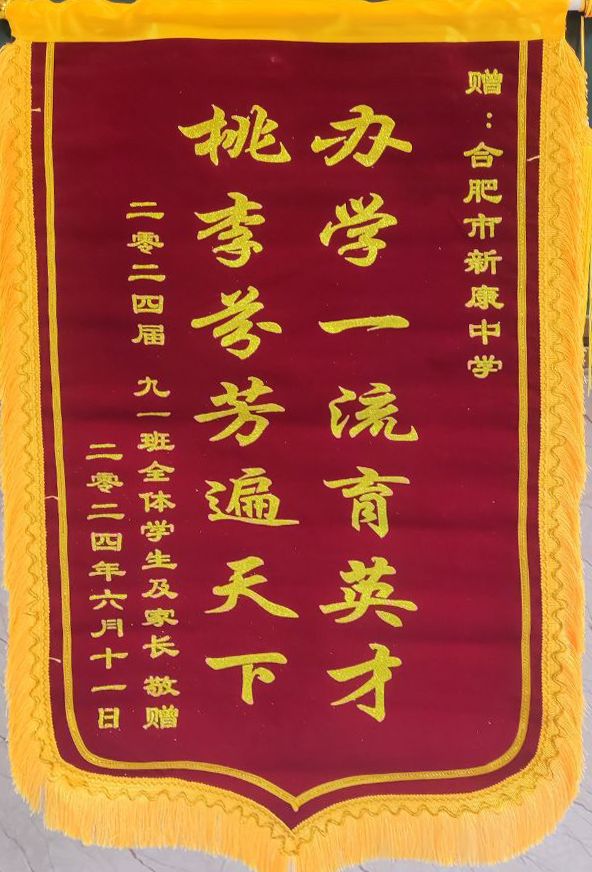 赠：合肥市新康中学
办学一流育英才
桃李芬芳遍天下
二零二四届 九一班全体学生及家长 敬赠
二零二四年六月十一日